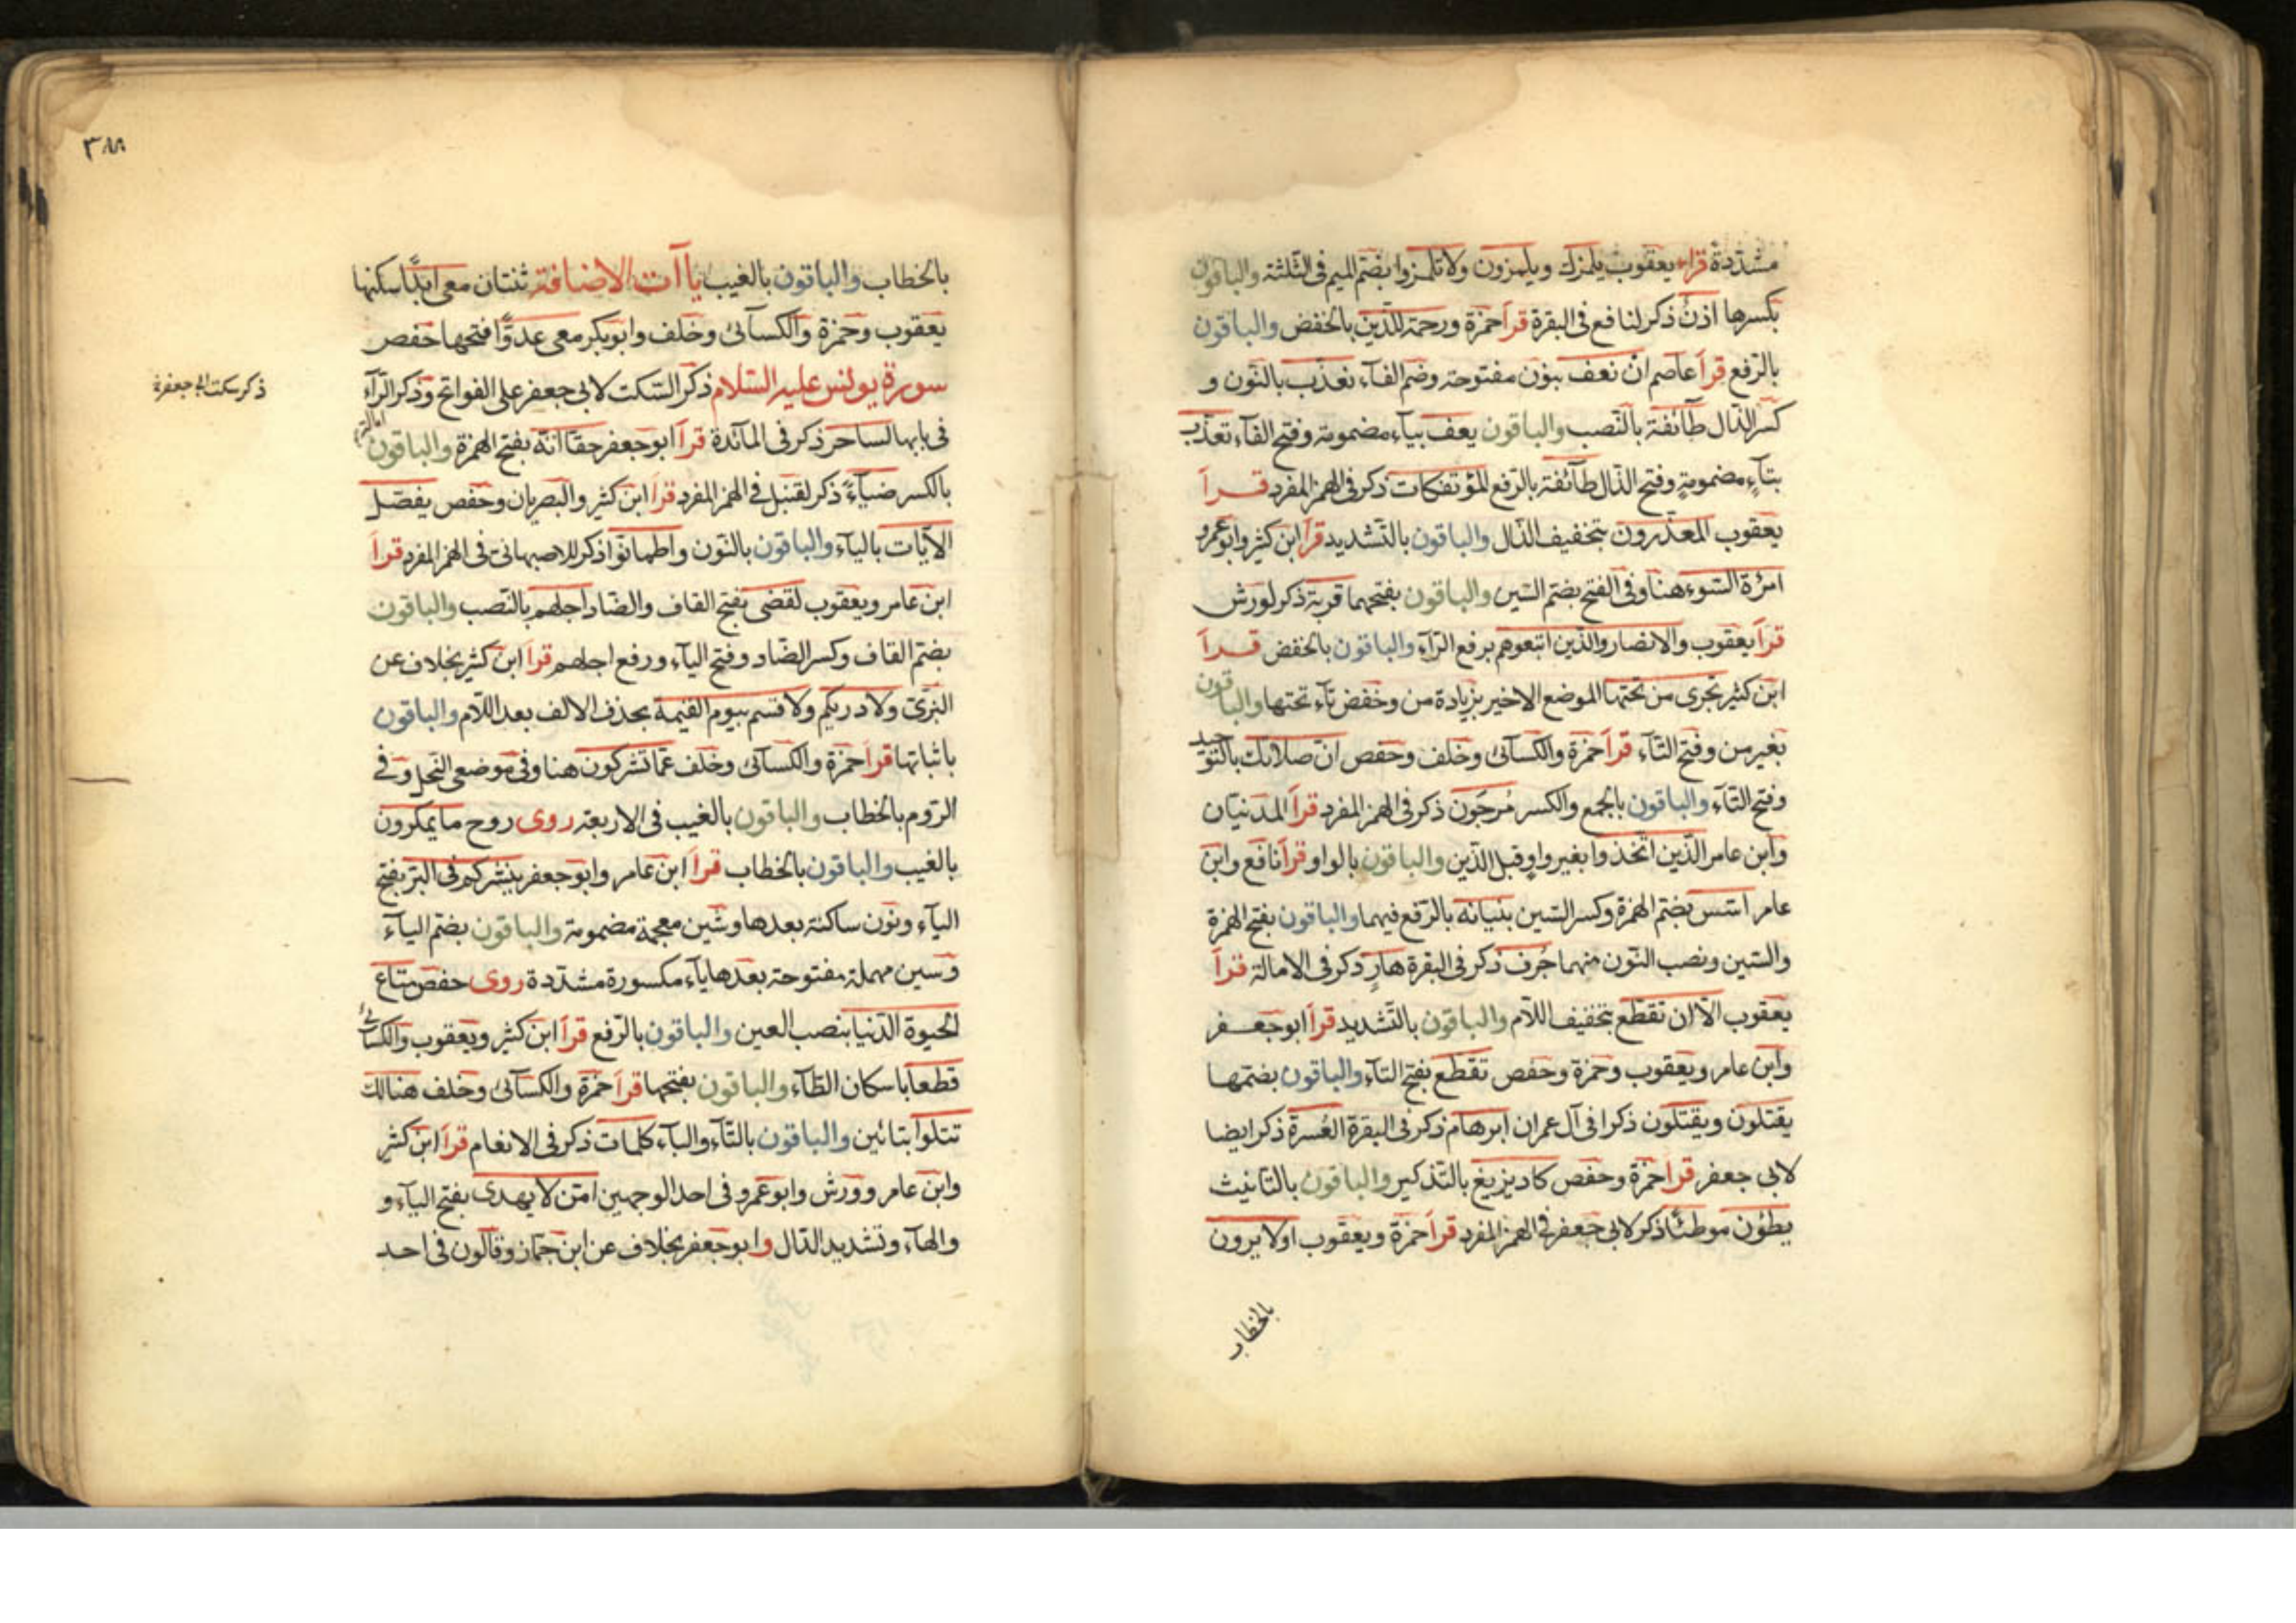 مشدّدة قرأ يعقوب يلمزك ويلمزون ولا تلمزوا بضمّ الميم فى الثلثة والباقون
بكسرها اذن ذكر لنافع فى البقرة قرأ حمزة ورحمة للذين بالخفض والباقون
بالرّفع قرأ عاصم ان نعف بنون مفتوحة وضم الفآء نعذّب بالنّون و
كسر الذّال طآئفة بالنّصب والباقون يعف بيآء مضمومة وفتح الفآء تعذّب
بتآء مضمومةٍ وفتح الذّال طآئفة بالرّفع المؤتفكات ذكر فى الهمز المفرد قرأ
يعقوب المعذرون بتخفيف الذّال والباقون بالتّشديد قرأ ابن كثير وابو عمرو
امرة السّوء هنا وفى الفتح بضم السّين والباقون بفتحهما قربة ذكر لورش
قرأ يعقوب والانصار والّذين اتبعوهم برفع الرّآء والباقون بالخفض قرأ
ابن كثير تجرى من تحتها الموضع الاخير بزيادة من وخفض تآء تحتها والباقون
بغير من وفتح التّآء قرأ حمزة والكسآئى وخلف وحفص ان صلاتك بالتّوحيد
وفتح التّآء والباقون بالجمع والكسر مُرجَون ذكر فى الهمز المفرد قرأ المدنيان
وابن عامر الّذين اتخذوا بغير واو قبل الّذين والباقون بالواو قرأ نافع وابن
عامر اسّس بضم الهمزة وكسر السّين بنيانه بالرّفع فيهما والباقون بفتح الهمزة
والسّين ونصب النّون منهما جُرف ذكر فى البقرة هارٍ ذكر فى الامالة قرأ
يعقوب الّا ان تقطّع بتخفيف اللّام والباقون بالتّشديد قرأ ابو جعفر
وابن عامر ويعقوب وحمزة وحفص تقطّع بفتح التّآء والباقون بضمّها
يقتلون ويقتلون ذكرا فى آل عمران ابرهام ذكر فى البقرة العُسرة ذكر ايضا
لابى جعفر قرأ حمزة وحفص كاد يزيغ بالتّذكير والباقون بالتّانيث
يطؤن موطئًا ذكر لابى جعفر فى الهمز المفرد قرأ حمزة ويعقوب اولا يرون
بالخطاب
٣٨٨
بالخطاب والباقون بالغيب ياآت الاضافة ثنتان معى ابدًا سكنها
يعقوب وحمزة والكسآئى وخلف وابوبكر معى عدوًّا فتحها حفص
سورة يونس عليه السّلام ذكر السّكت لابى جعفر على الفواتح وذكر الرّآء
ذكر سكت ابى جعفر
فى بابها لساحر ذكر فى المآئدة قرأ ابو جعفر حقّا انّه بفتح الهمزة والباقون
بالكسر ضيآءً ذكر لقنبل فى الهمز المفرد قرأ ابن كثير والبصريان وحفص يفصّل
الآيات باليآء والباقون بالنّون واطمانّوا ذكر للاصبهانىّ فى الهمز المفرد قرأ
ابن عامر ويعقوب لقضى بفتح القاف والضّاد اجلهم بالنّصب والباقون
بضمّ القاف وكسر الضّاد وفتح اليآء ورفع اجلهم قرأ ابن كثير بخلاف عن
البزّىّ ولا دريكم ولا قسم بيوم القيمة بحذف الالف بعد اللّام والباقون
باثباتها قرأ حمزة والكسآئى وخلف عمّا تشركون هنا وفى موضعى النّحل وفى
الرّوم بالخطاب والباقون بالغيب فى الاربعة روى روح ما يمكرون
بالغيب والباقون بالخطاب قرأ ابن عامر وابو جعفر ينشركم فى البرّ بفتح
اليآء ونون ساكنة بعدها وشين معجمة مضمومة والباقون بضم اليآء
وسين مهملة مفتوحة بعدها يآء مكسورة مشدّدة روى حفص متاع
الحيوة الدّنيا بنصب العين والباقون بالرّفع قرأ ابن كثير ويعقوب والكسائى
قطعا باسكان الطّآء والباقون بفتحها قرأ حمزة والكسآئى وخلف هنالك
تتلوا بتائين والباقون بالتّآء والبآء كلمات ذكر فى الانعام قرأ ابن كثير
وابن عامر وورش وابو عمرو فى احد الوجهين امّن لا يهدى بفتح اليآء و
والهآء وتشديد الدّال وابو جعفر بخلاف عن ابن جمّاز وقالون فى احد